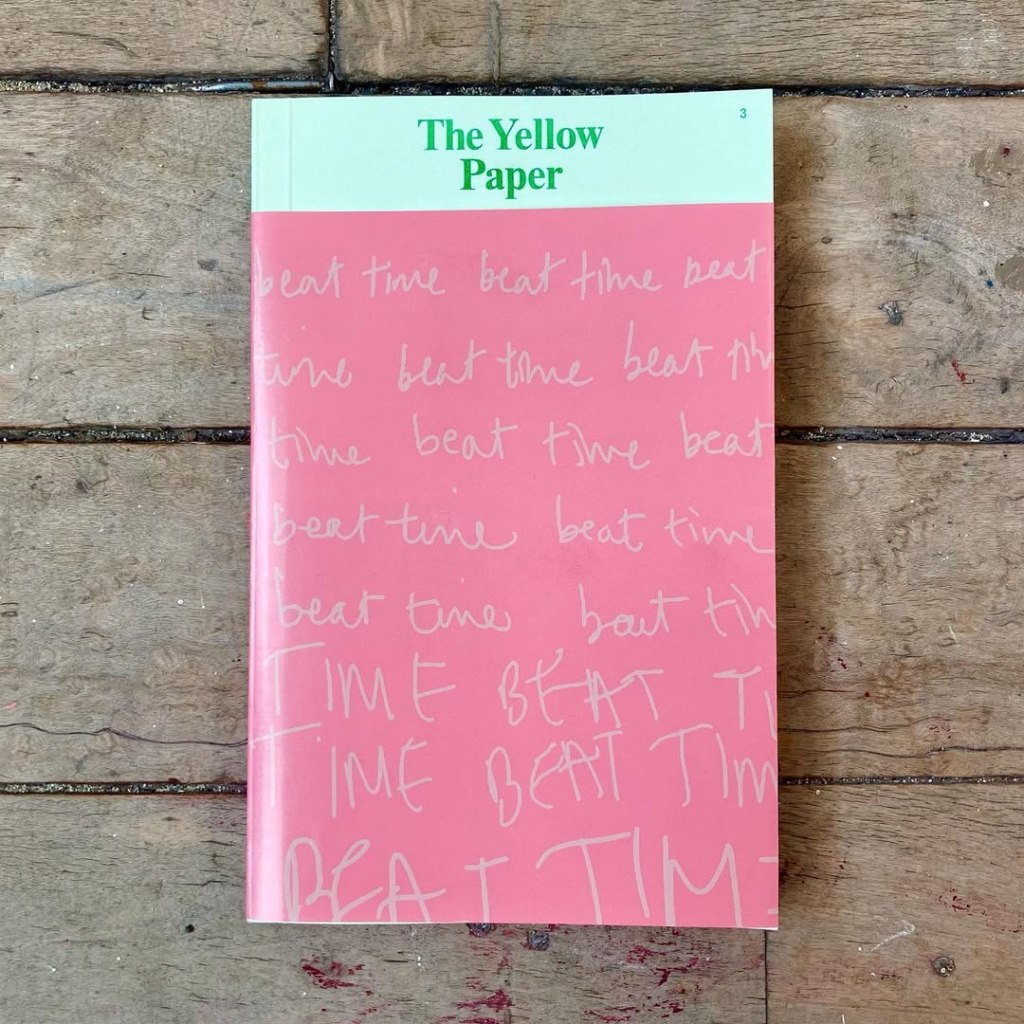 The Yellow
Paper
3
beat time beat time beat
time beat time beat tim
time beat time beat
beat time beat time
beat time beat tim
TIME BEAT TI
TIME BEAT TIM
BEAT TIM